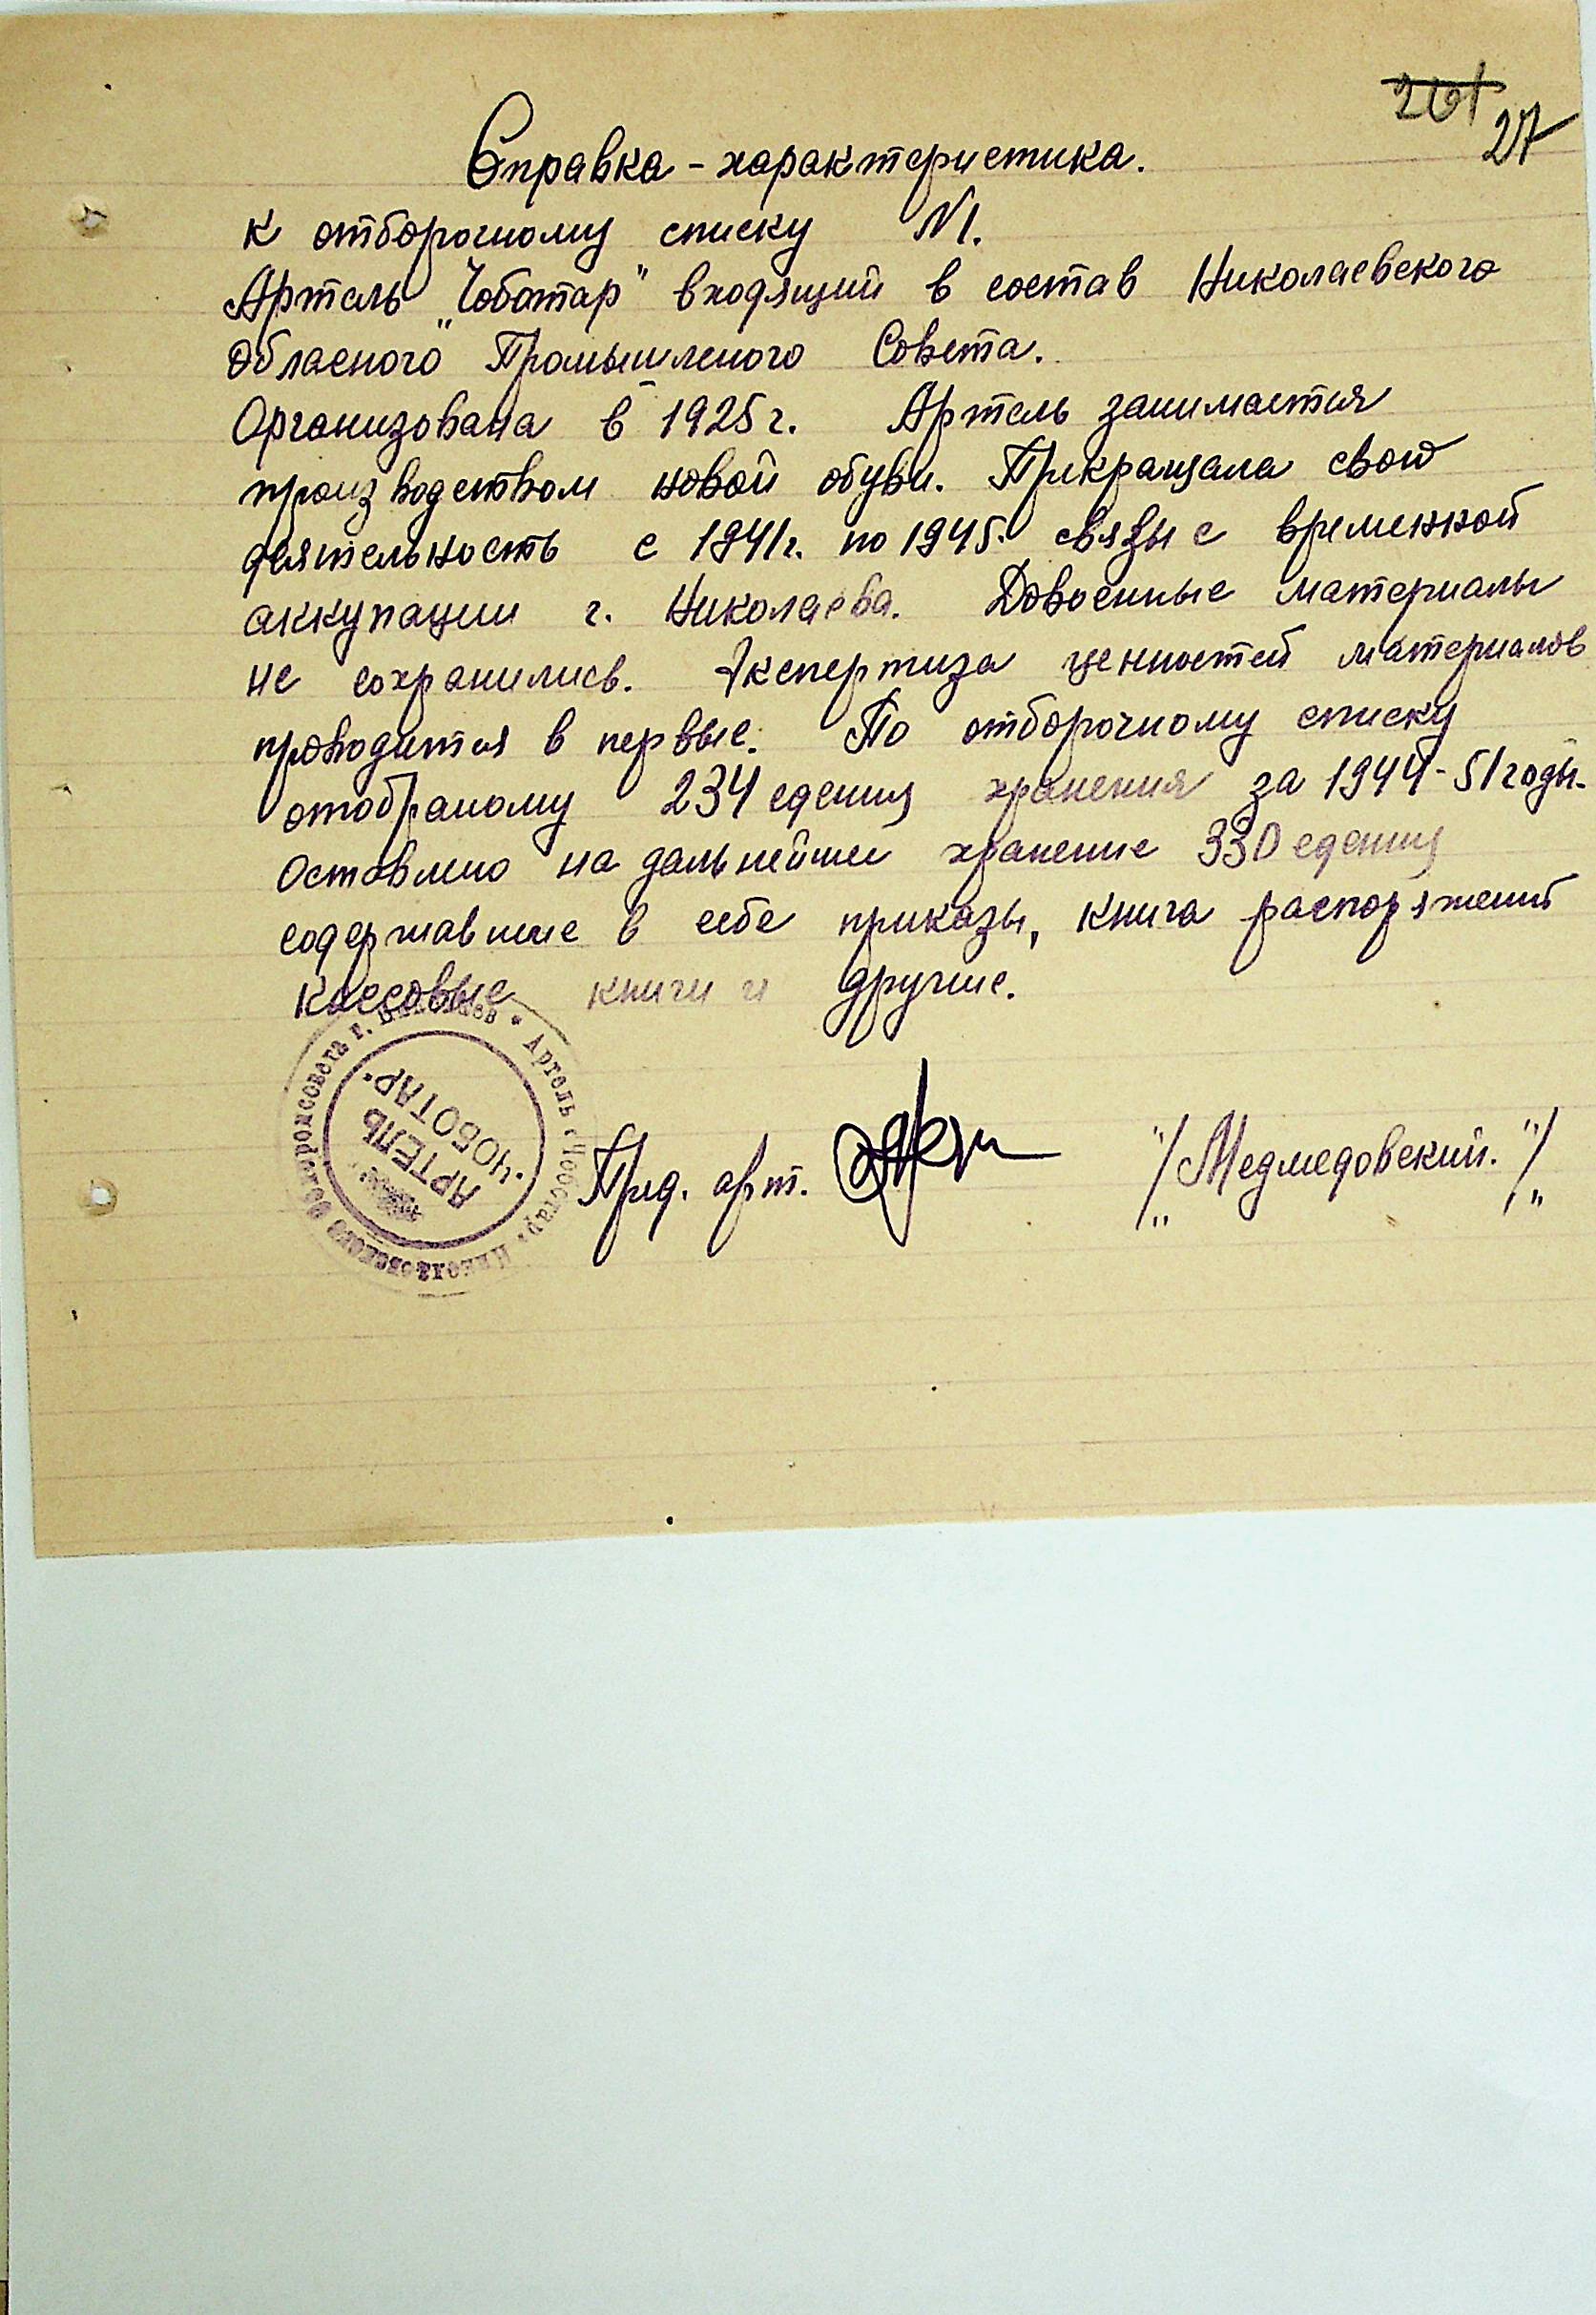 261 27
Справка - характеристика.
к отборочному списку N1.
Артель „Чоботар" входящий в состав Николаевского
Обласного Промышленого Совета.
Организована в 1925 г. Артель занимается
производством новой обуви. Прикращала свою
деятельность с 1941 г. по 1945. связы с временной
аккупации г. Николаева. Довоенные материалы
не сохранились. Экспертиза ценностей материалов
проводится в первые. По отборочному списку
отобраному 234 едениц хранения за 1944-51 годы.
Оставлено на дальнейшее хранение 330 едениц
содержавшие в себе приказы, книга распоряжений
кассовые книги и другие.
Николаевского Облпромсовета г. Николаев * Артель „Чоботар"
АРТЕЛЬ
„ЧОБОТАР"
Пред. арт. "/Медмедовский."/